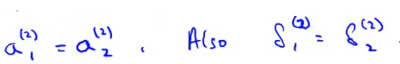 a₁⁽²⁾ = a₂⁽²⁾. Also δ₁⁽²⁾ = δ₂⁽²⁾.